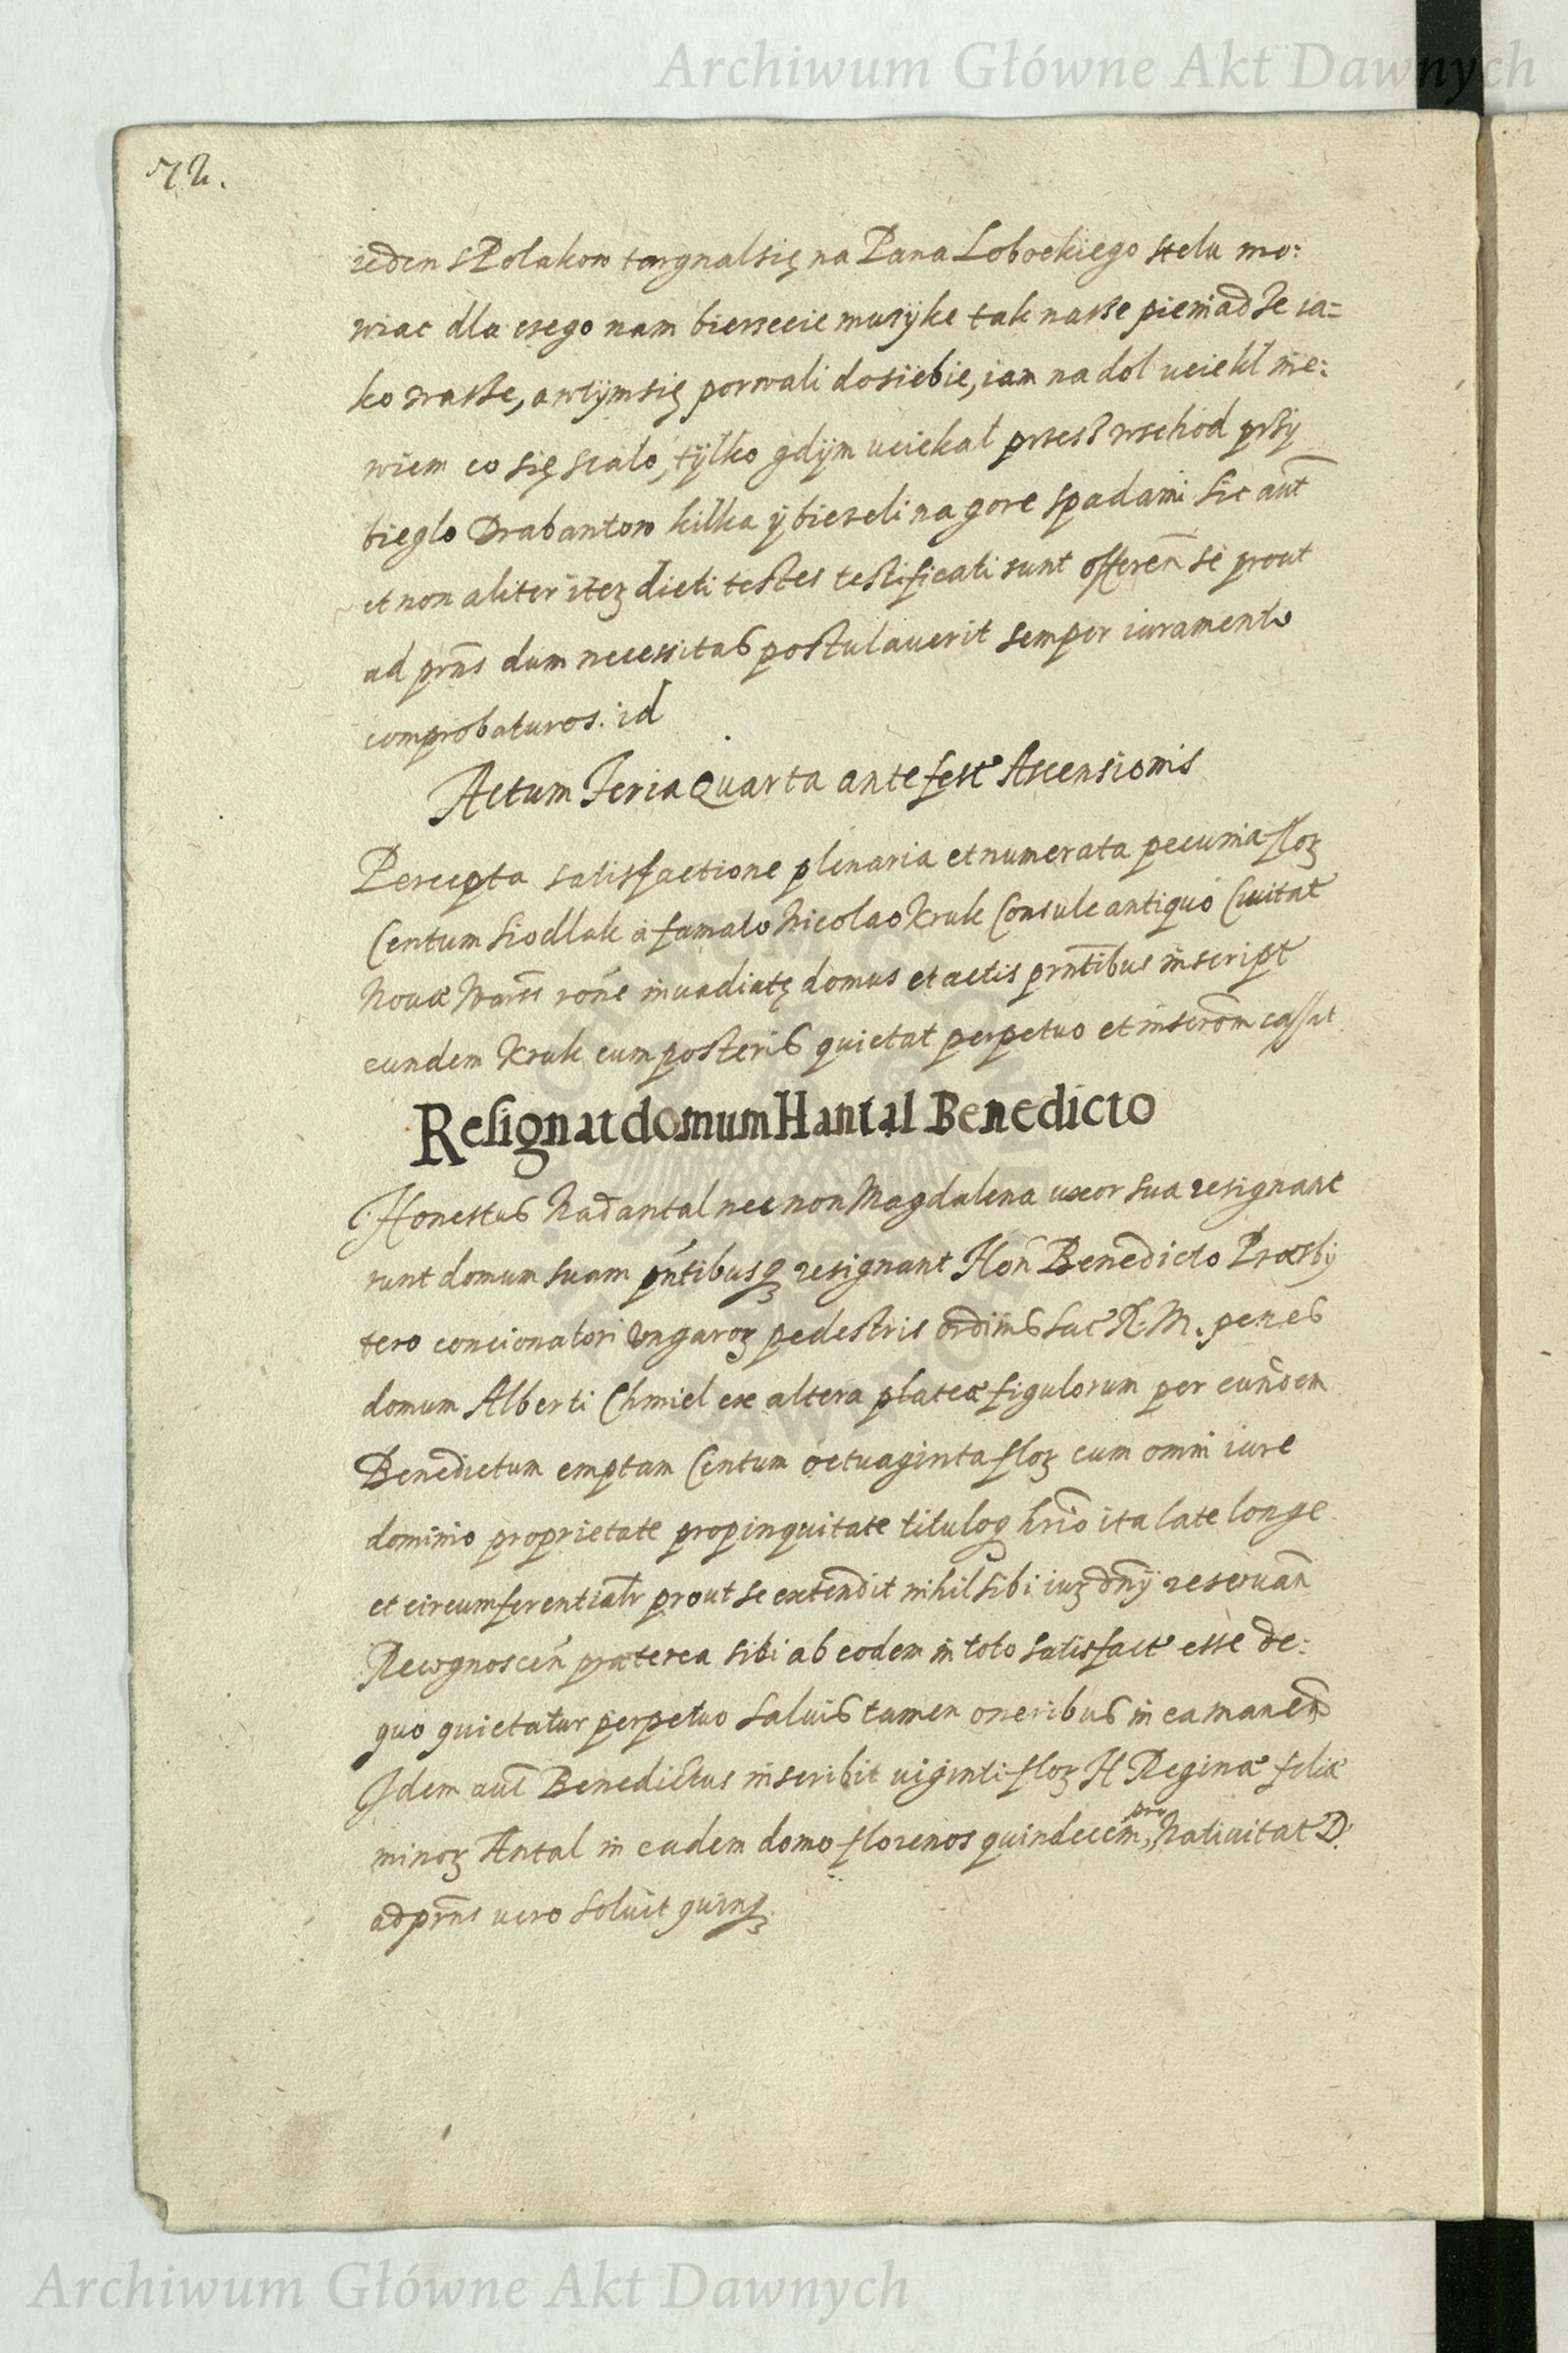 Archiwum Główne Akt Dawnych
72.
ieden s Polakow targnal się na Pana Lobockiego stelu mo:
wiac dla czego nam bierzecie muzÿke tak nasse pieniadze ia=
ko wasse, a wtÿm się porwali do siebie, iam na dol uciekl nie:
wiem co się stalo, tÿlko gdÿm uciekal przess wschod przÿ
bieglo Drabantow kilka ÿ biezeli na gore spadami sic aut
et non aliter itez dicti testes testificati sunt offeren se prout
ad prns dum necessitas postulauerit semper iuramento
comprobaturos. id
Actum Feria Quarta ante fest Ascensionis
Percepta satisfactione plenaria et numerata pecunia floz
Centum Siodlak a famato Nicolao Kruk Consule antiquo Ciuitat
Nouæ Wars rone inuadiatę domus et actis prntibus inscript
eundem Kruk cum posteris quietat perpetuo et inscrom cassat
Resignat domum Hantal Benedicto
Honestus Nad antal nec non Magdalena uxor sua resignaue
runt domum suam pntibusq resignant Hon Benedicto Præsbÿ
tero concionatori Vngaroz pedestris ordinis Sac R. M. penes
domum Alberti Chmiel ex altera plateæ figulorum per eundem
Benedictum emptam Centum octuaginta floz cum omni iure
dominio proprietate propinquitate tituloq hrio ita late longe
et circumferentialr prout se extendit nihil sibi iuz dnÿ reseruan
Recognoscen præterea sibi ab eodem in toto satisfact esse de:
quo quietatur perpetuo saluis tamen oneribus in ea manen
Idem aut Benedictus inscribit uiginti floz H Reginæ feliæ
minoz Antal in eadem domo florenos quindecem, pro Natiuitat D.
ad prns uero soluit quinq
Archiwum Główne Akt Dawnych